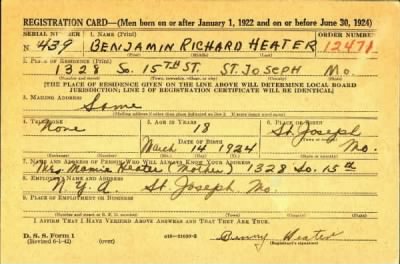 REGISTRATION CARD—(Men born on or after January 1, 1922 and on or before June 30, 1924)
SERIAL NUMBER 1. NAME (Print) ORDER NUMBER
N 439 BENJAMIN RICHARD HEATER 12471
2. PLACE OF RESIDENCE (Print)
1328 So. 15TH ST. ST. JOSEPH Mo.
(Number and street) (Town, township, village, or city) (County) (State)
[THE PLACE OF RESIDENCE GIVEN ON THE LINE ABOVE WILL DETERMINE LOCAL BOARD
JURISDICTION; LINE 2 OF REGISTRATION CERTIFICATE WILL BE IDENTICAL]
3. MAILING ADDRESS
Same
4. TELEPHONE 5. AGE IN YEARS 6. PLACE OF BIRTH
None 18 St. Joseph
DATE OF BIRTH
March 14 1924 Mo.
7. NAME AND ADDRESS OF PERSON WHO WILL ALWAYS KNOW YOUR ADDRESS
Mrs. Mamie Heater (Mother) 1328 So. 15th
8. EMPLOYER'S NAME AND ADDRESS
N.Y.A. St. Joseph, Mo.
9. PLACE OF EMPLOYMENT OR BUSINESS
(Number and street or R. F. D. number) (Town) (County) (State)
I AFFIRM THAT I HAVE VERIFIED ABOVE ANSWERS AND THAT THEY ARE TRUE.
D. S. S. Form 1
(Revised 6-1-42) (over) Benny Heater
(Registrant's signature)